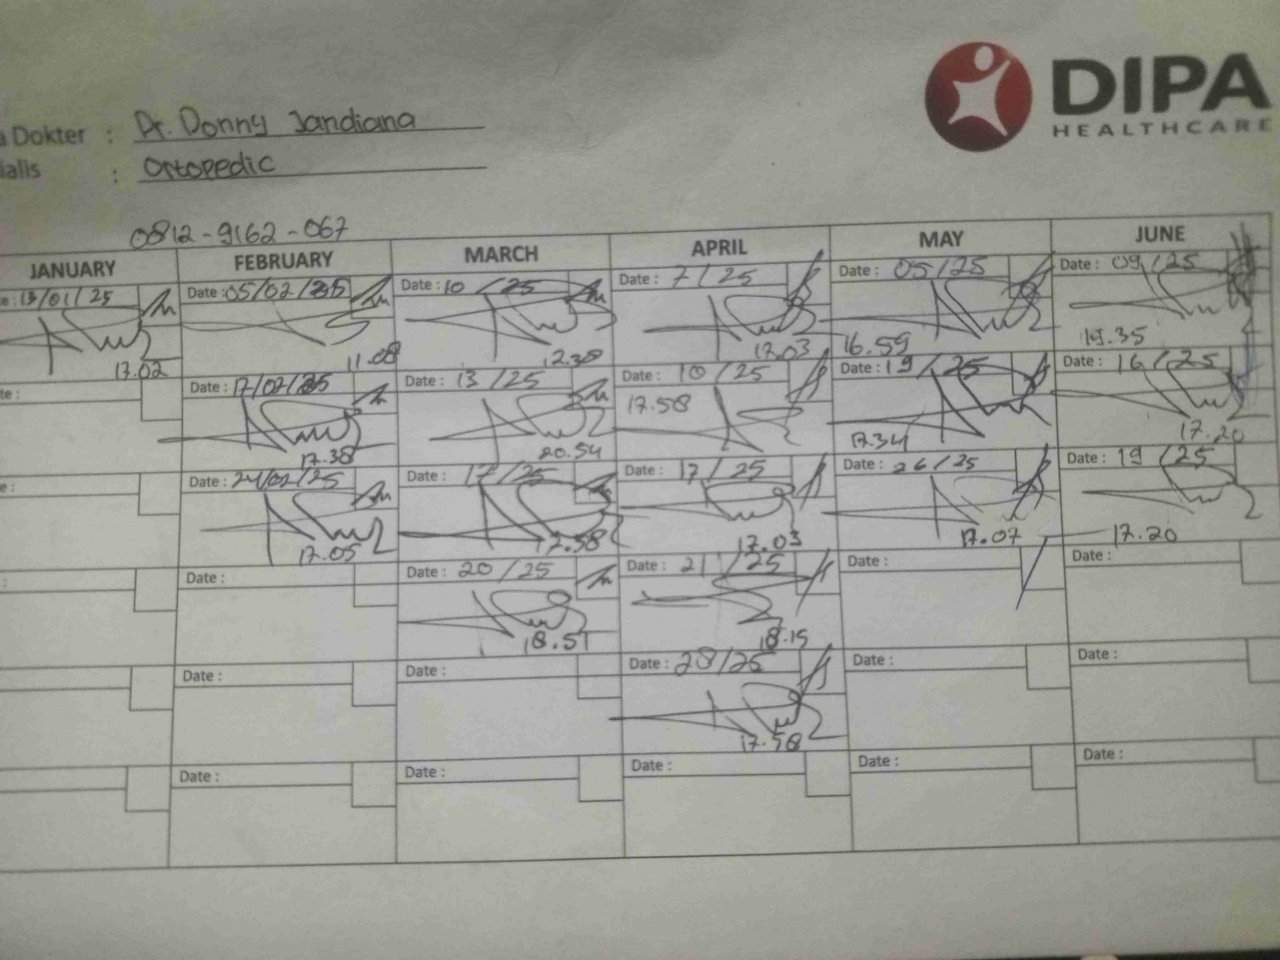 DIPA
HEALTHCARE
a Dokter : Dr. Donny Jandiana
ialis : Ortopedic
0812-9162-067
JANUARY FEBRUARY MARCH APRIL MAY JUNE
e: 13/01/25 Date: 05/02/25 Date: 10/25 Date: 7/25 Date: 05/25 Date: 09/25
17.02 11.08 12.38 17.03 16.59 19.35
te: Date: 17/02/25 Date: 13/25 Date: 10/25 Date: 19/25 Date: 16/25
17.38 20.54 17.58 17.34 17.20
e: Date: 24/02/25 Date: 17/25 Date: 17/25 Date: 26/25 Date: 19/25
17.05 17.58 17.03 17.07 17.20
: Date: Date: 20/25 Date: 21/25 Date: Date:
18.51 18.15
Date: Date: Date: 28/25 Date: Date:
17.58
Date: Date: Date: Date: Date: